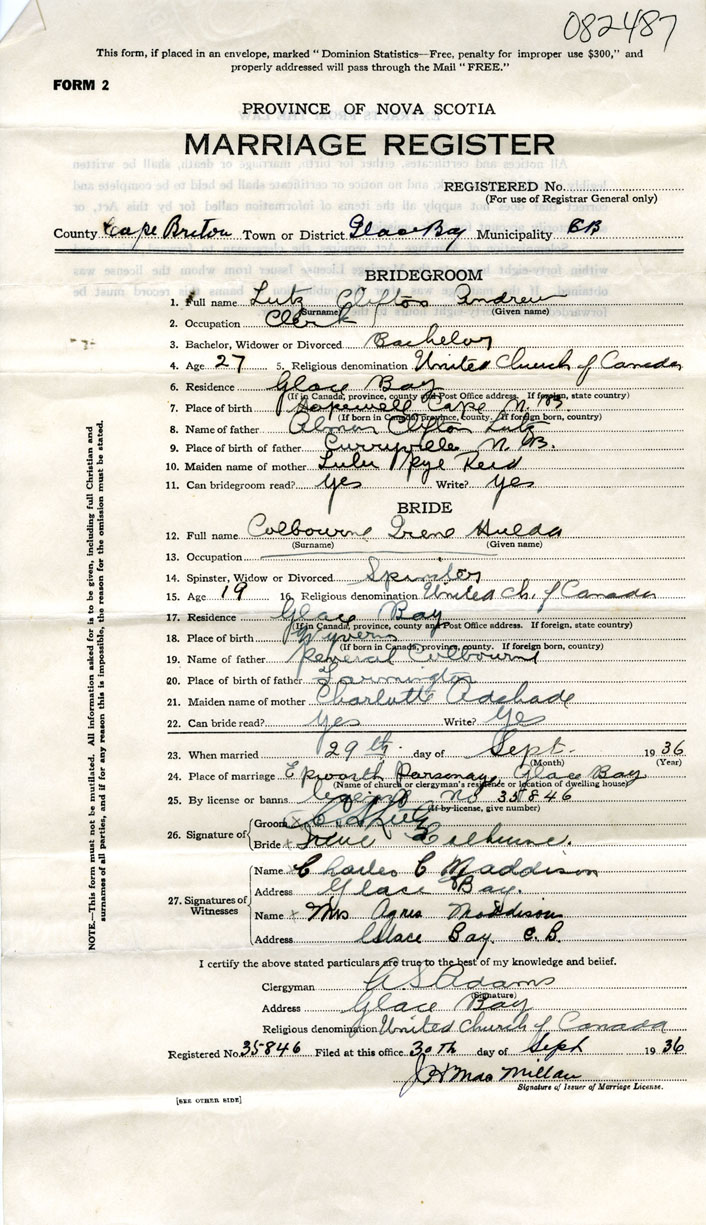 082487
This form, if placed in an envelope, marked "Dominion Statistics—Free, penalty for improper use $300," and
properly addressed will pass through the Mail "FREE."
FORM 2
PROVINCE OF NOVA SCOTIA
MARRIAGE REGISTER
REGISTERED No.
(For use of Registrar General only)
County Cape Breton Town or District Glace Bay Municipality CB
BRIDEGROOM
1. Full name Lutz Clifton Andrew
(Surname) (Given name)
2. Occupation Clerk
3. Bachelor, Widower or Divorced Bachelor
4. Age 27 5. Religious denomination United Church of Canada
6. Residence Glace Bay
(If in Canada, province, county and Post Office address. If foreign, state country)
7. Place of birth Hopewell Cape N. B.
(If born in Canada, province, county. If foreign born, country)
8. Name of father Clifton Lutz
9. Place of birth of father Curryville N. B.
10. Maiden name of mother Lulu Reid
11. Can bridegroom read? Yes Write? Yes
BRIDE
12. Full name Colbourne Irene Hulda
(Surname) (Given name)
13. Occupation
14. Spinster, Widow or Divorced Spinster
15. Age 19 16. Religious denomination United Ch. of Canada
17. Residence Glace Bay
(If in Canada, province, county and Post Office address. If foreign, state country)
18. Place of birth Wyvern
(If born in Canada, province, county. If foreign born, country)
19. Name of father Colbourne
20. Place of birth of father Farmington
21. Maiden name of mother Charlotte Adshade
22. Can bride read? Yes Write? Yes
23. When married 29th day of Sept. 1936
(Month) (Year)
24. Place of marriage Epworth Parsonage, Glace Bay
(Name of church or clergyman's residence or location of dwelling house)
25. By license or banns License No 35846
(If by license, give number)
26. Signature of Groom x C. A. Lutz
Bride x Irene Colbourne.
27. Signatures of Witnesses Name x Charles C Maddison
Address Glace Bay.
Name x Mrs Agnes Maddison
Address Glace Bay C. B.
I certify the above stated particulars are true to the best of my knowledge and belief.
Clergyman Adams
(Signature)
Address Glace Bay
Religious denomination United Church of Canada
Registered No. 35846 Filed at this office 30th day of Sept 1936
J H MacMillan
Signature of Issuer of Marriage License.
[SEE OTHER SIDE]
NOTE.—This form must not be mutilated. All information asked for is to be given, including full Christian and
surnames of all parties, and if for any reason this is impossible, the reason for the omission must be stated.